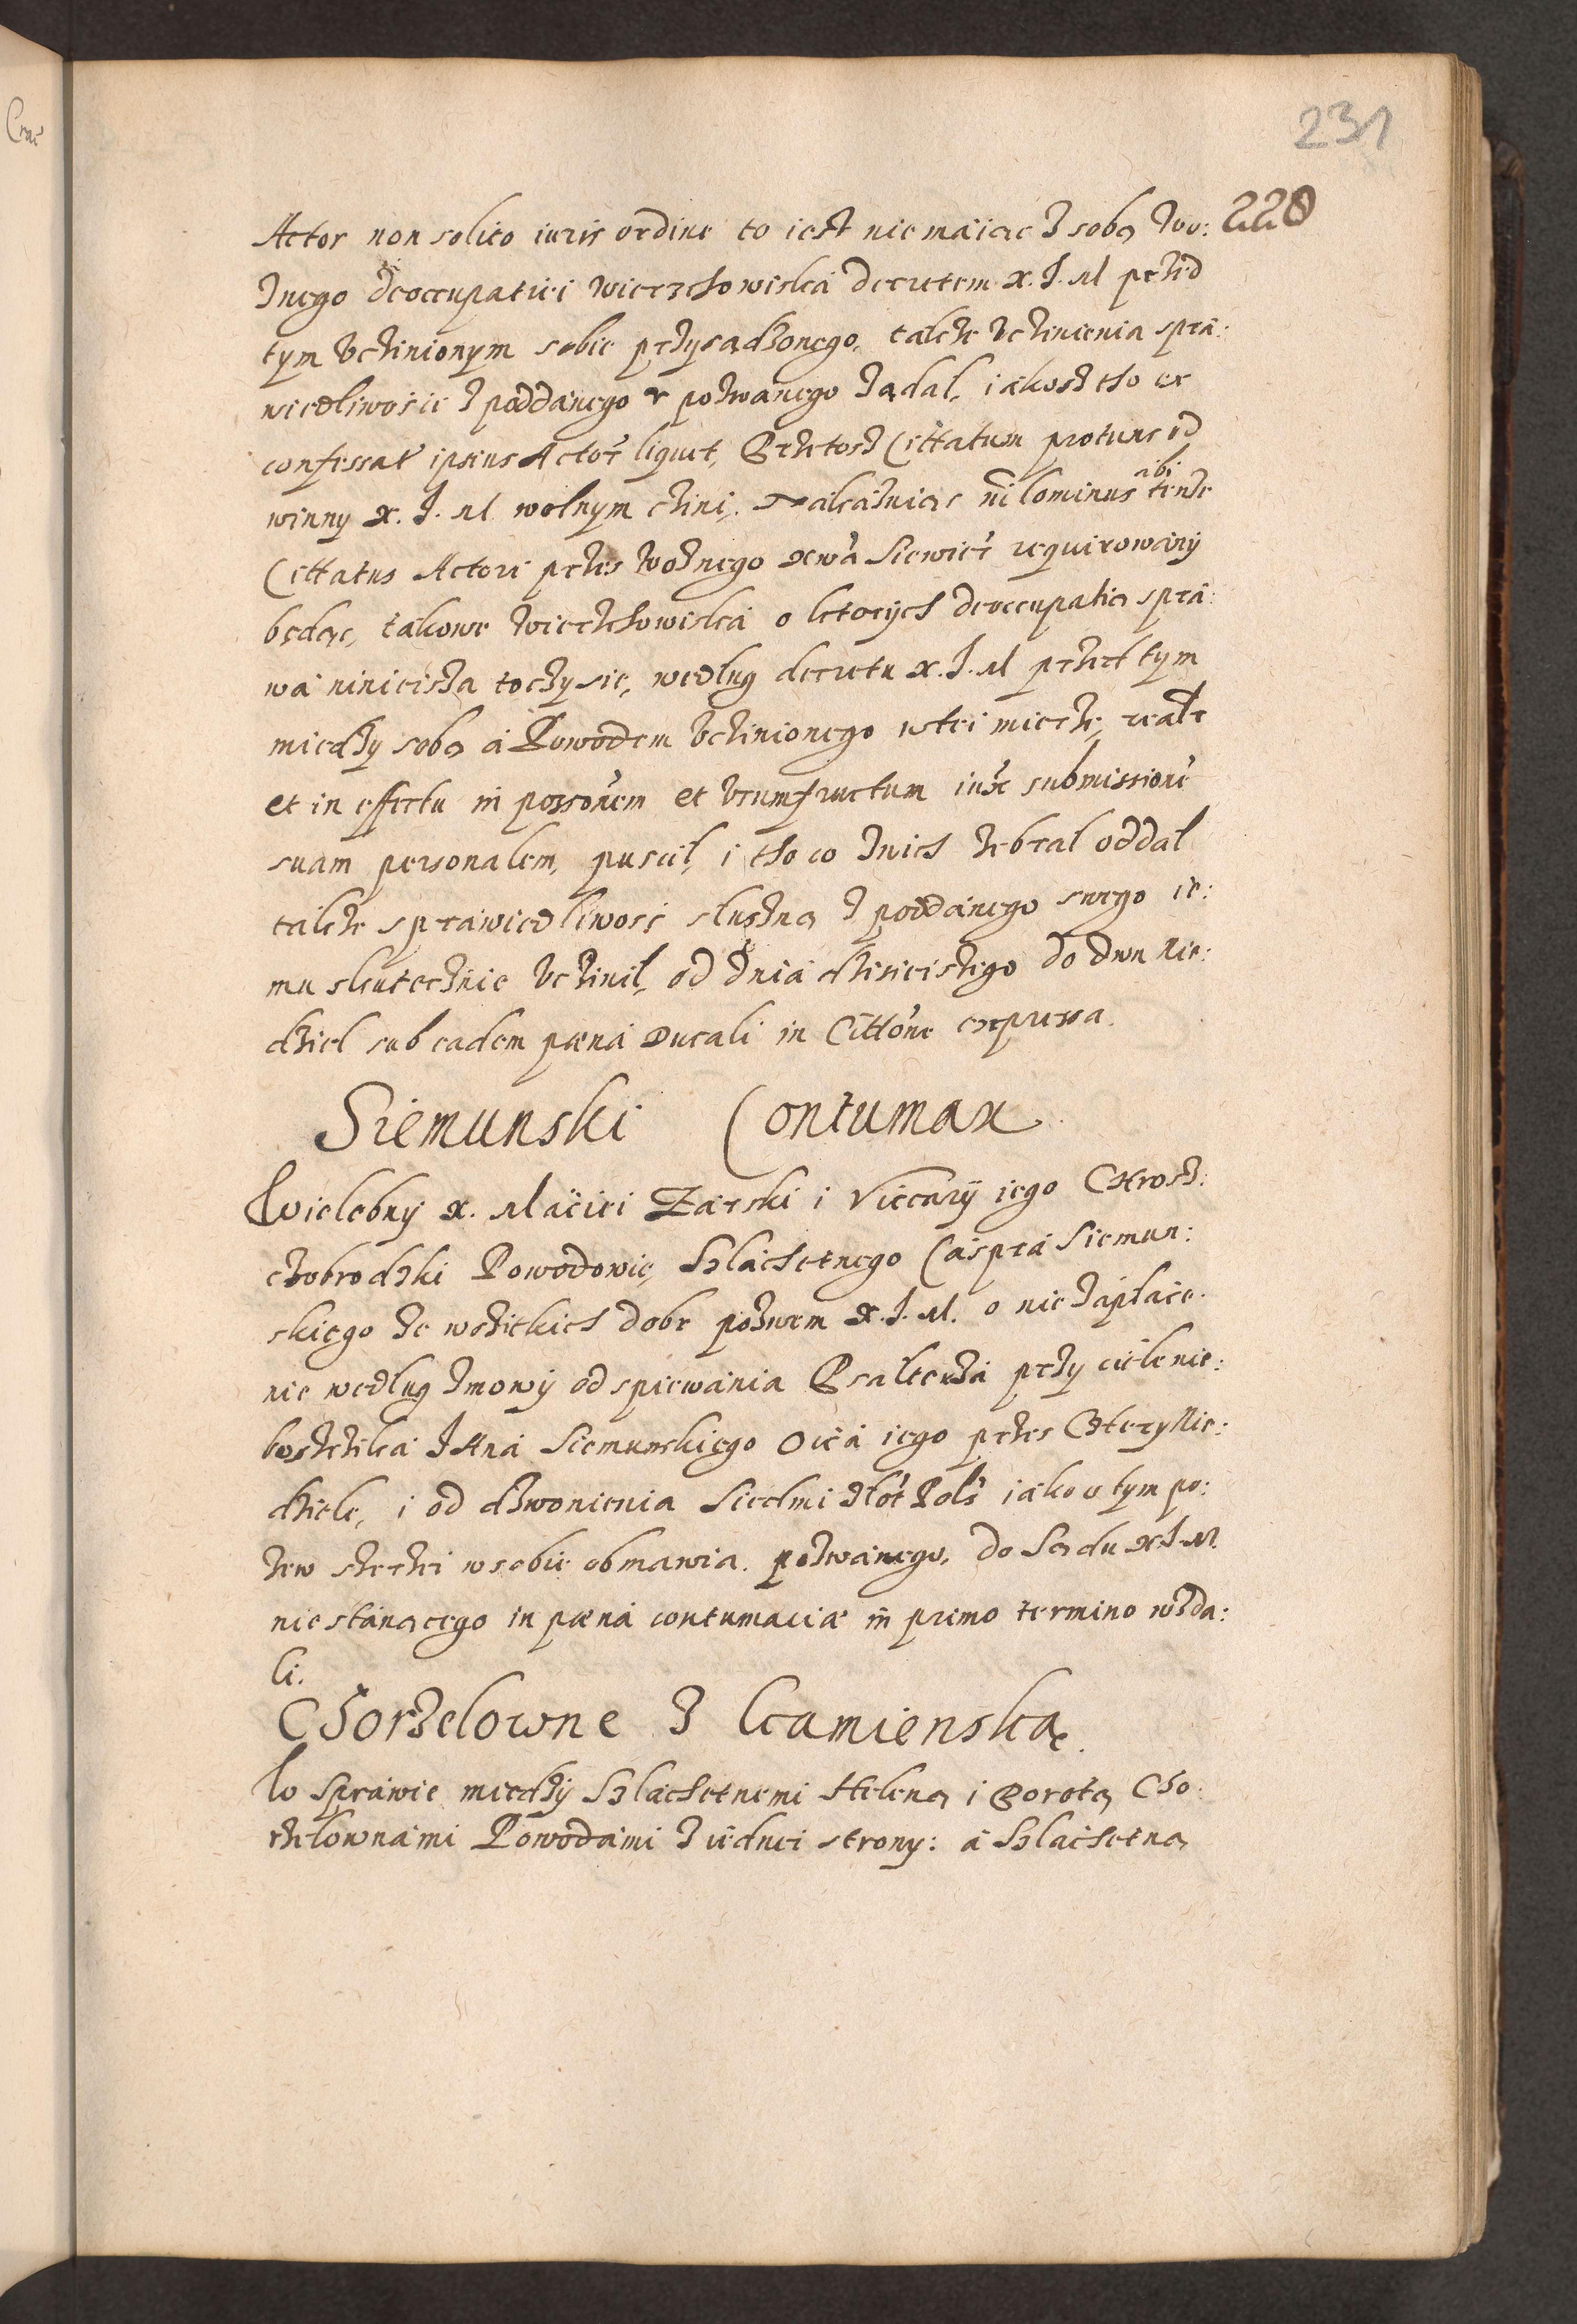 231
220
Actor non solito iuris ordine to iest nie maiąc z sobą wo:
znego deoccupatiei wierzchowiska decretem X. J. M przed
tym vczinionym sobie przysądzonego, takze vczinienia spra:
wiedliwosie z poddanego r pozwanego ządal, iakosz tho ex
confessat ipsius Actor liquet, Przetosz Cittatum protunc od
winny X. J. M wolnym czini. Nakaznięc nilominus abi tenze
Cittatus Actori przes woznego Siewier requirowany
będąc, takowe wierzchowiska o ktorych deoccupatią spra:
wa ninieisza toczy sie, wedlug decretu X. J. M przed tym
miedzy sobą a Powodem vczinionego wtei mierze, reale
et in effectu in possonem et vsumfructum iuxt submissione
suam personalem, puscil, i tho co znich zebral oddal
takze sprawiedliwosc sluszną z poddanego swego ie:
mu skutecznie vczinil, od dnia dzisieiszego do dwu nie:
dziel sub eadem pœna Ducali in Cittone expressa.
Siemunski Contumax
Wielebny X. Maciei Zarski i Viccary iego Chrosz:
czobrodzki Powodowie, Szlachetnego Caspra Siemun:
skiego ze wszitkich dobr pozwem X. J. M. o nie zaplace
nie wedlug zmowy od spiewania Psalterza przy ciele nie:
boszczika Jana Siemunskiego Oica iego przes Cztery Nie:
dziele, i od dzwonienia Siedmi zlot Pols iako o tym po:
zew szerzei w sobie obmawia. pozwanego, do Sądu X J M
nie stanącego in pœna contumaciæ in primo termino wzda:
li.
Chorzelowne z Kamienską.
W sprawie miedzy Szlachetnemi Heleną i Dorotą Cho:
rzelownami Powodami z iednei strony: a Szlachetną